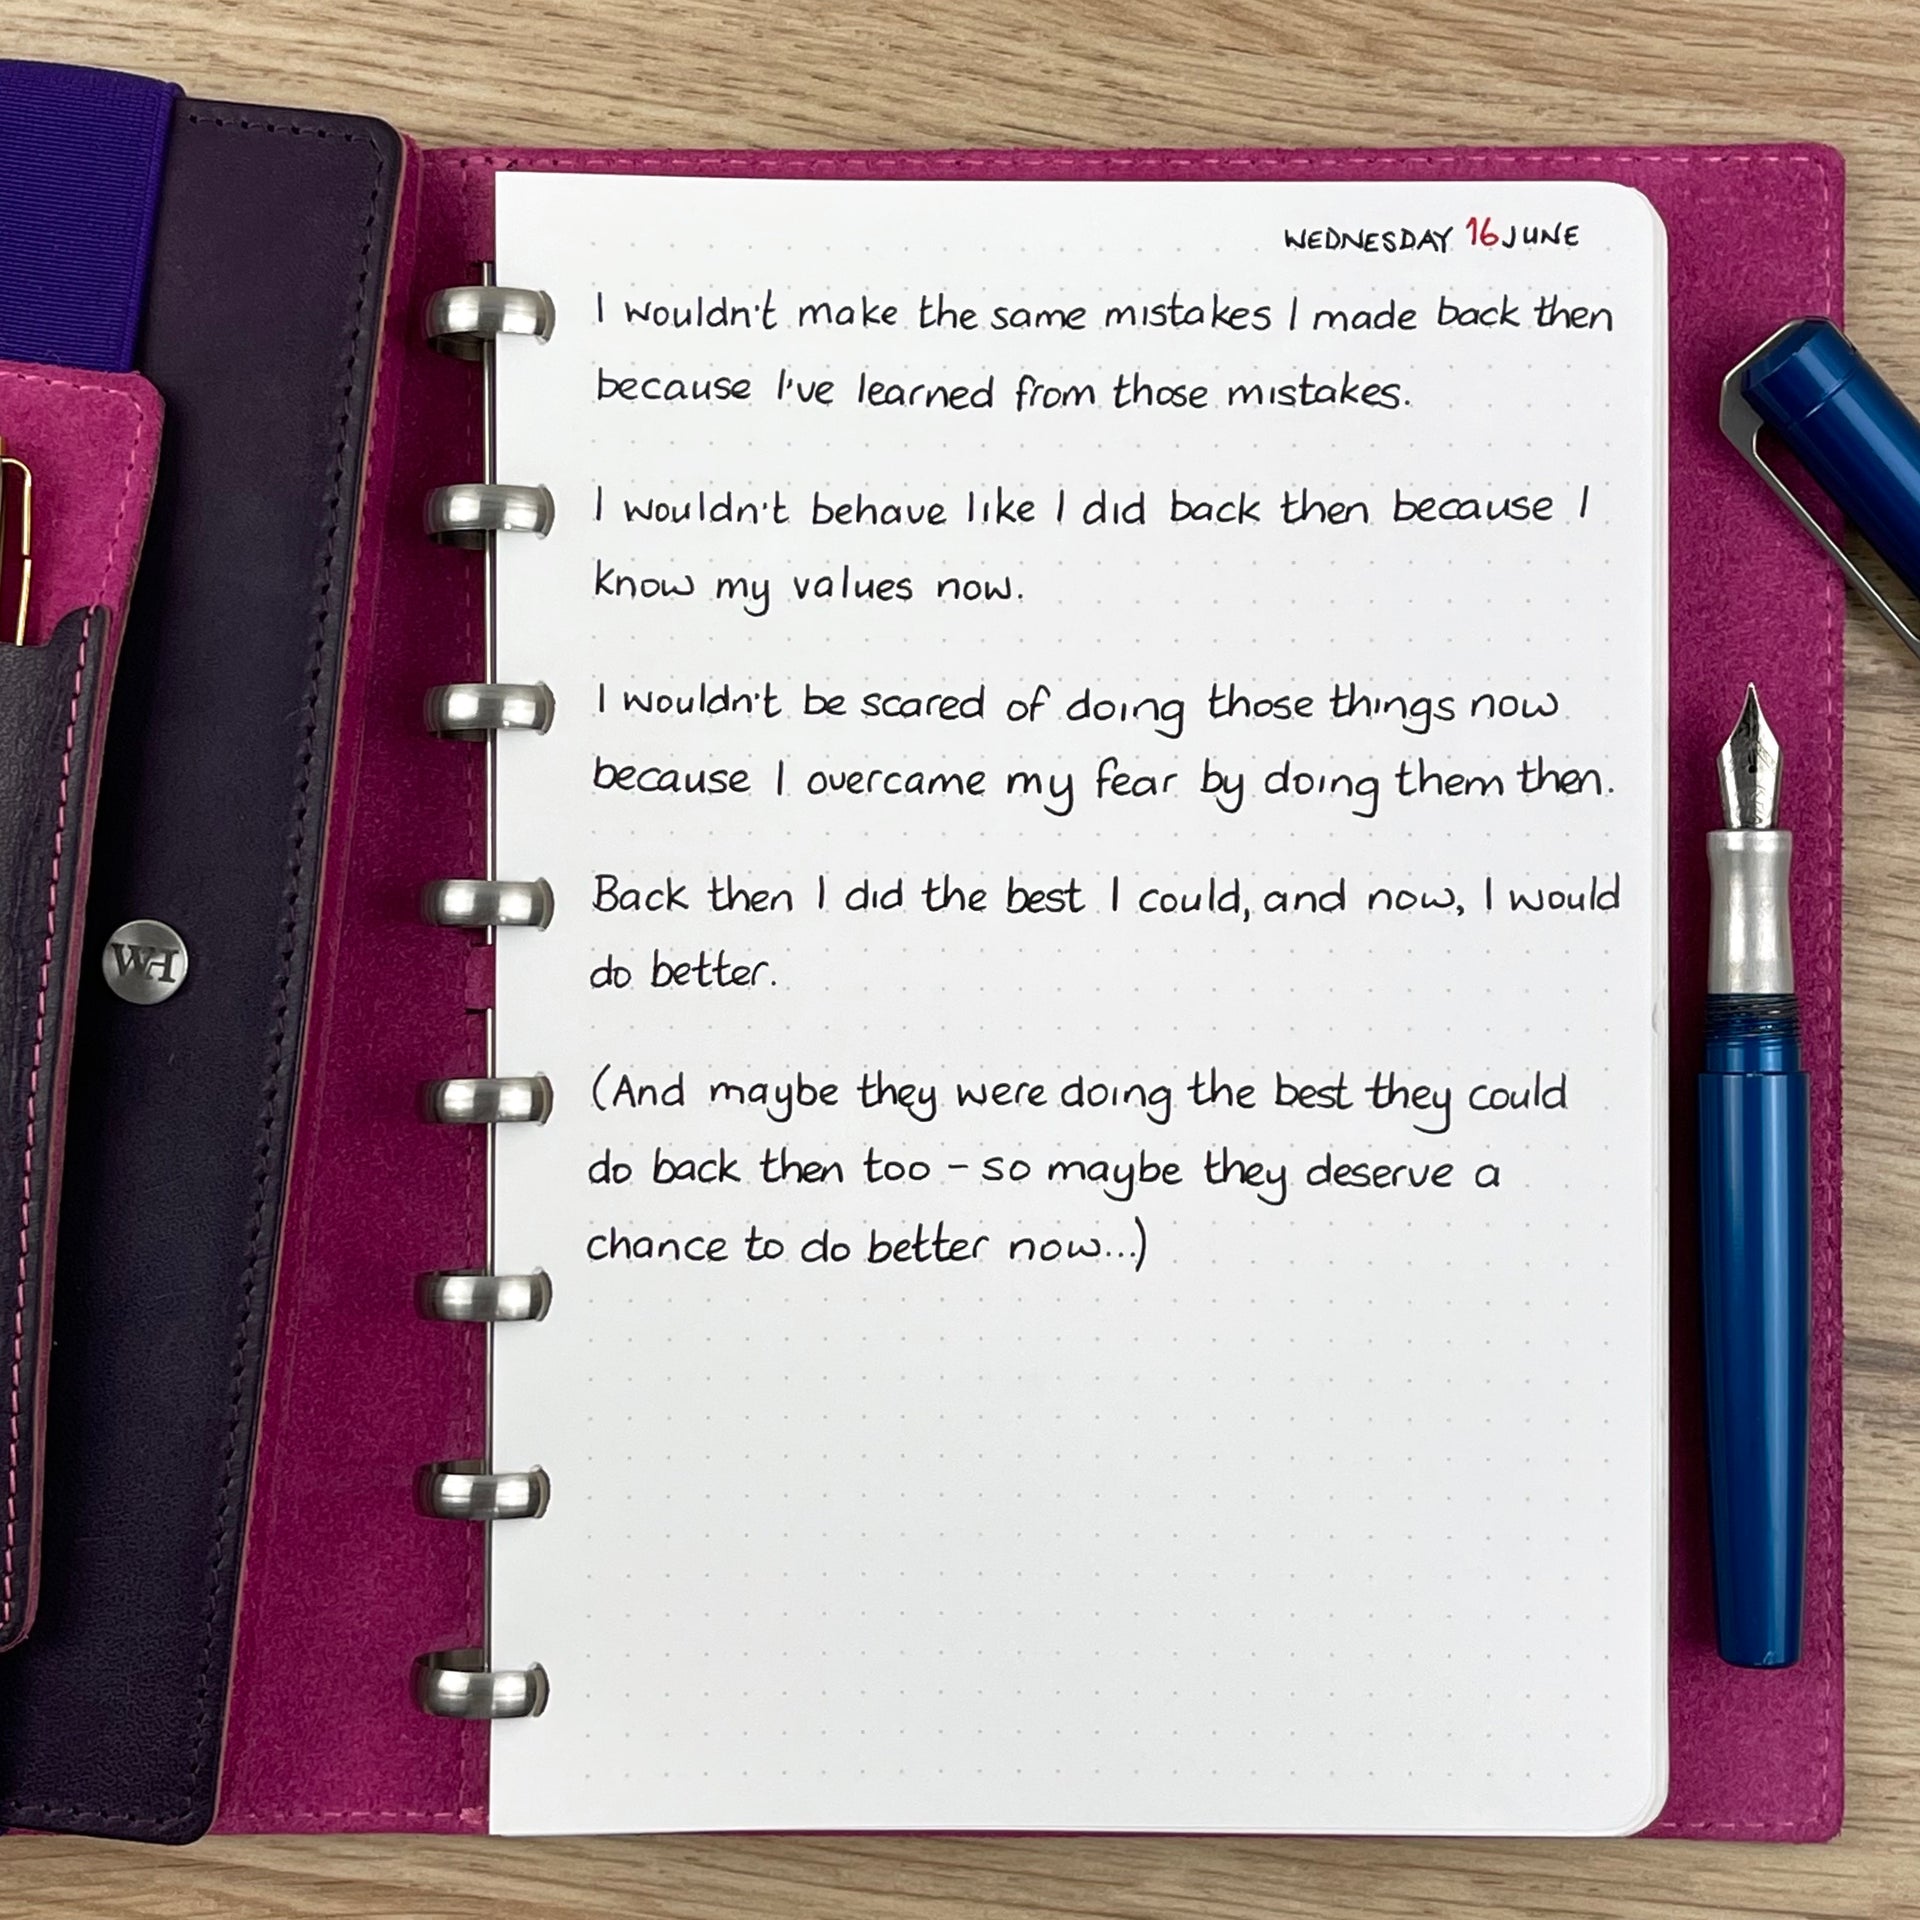 WEDNESDAY 16 JUNE
I wouldn't make the same mistakes I made back then
because I've learned from those mistakes.
I wouldn't behave like I did back then because I
know my values now.
I wouldn't be scared of doing those things now
because I overcame my fear by doing them then.
Back then I did the best I could, and now, I would
do better.
(And maybe they were doing the best they could
do back then too - so maybe they deserve a
chance to do better now...)
WH